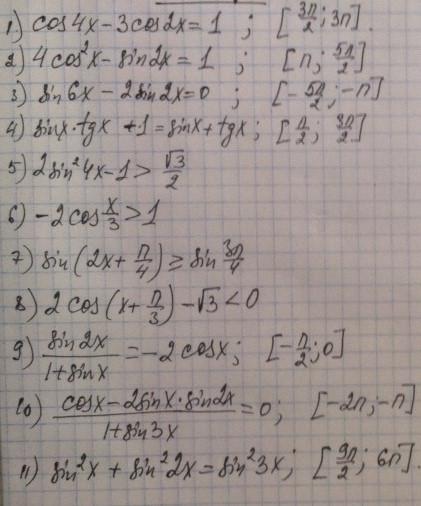 1) cos4x - 3cos2x = 1 ; [3π/2; 3π].
2) 4cos²x - sin2x = 1 ; [π; 5π/2]
3) sin6x - 2sin2x = 0 ; [-5π/2; -π]
4) sinx·tgx + 1 = sinx + tgx ; [π/2; 3π/2]
5) 2sin²4x - 1 > √3/2
6) -2cos x/3 > 1
7) sin(2x + π/4) ≥ sin 3π/4
8) 2cos(x + π/3) - √3 < 0
9) sin2x/(1+sinx) = -2cosx; [-π/2; 0]
10) (cosx - 2sinx·sin2x)/(1+sin3x) = 0; [-2π; -π]
11) sin²x + sin²2x = sin²3x; [9π/2; 6π].